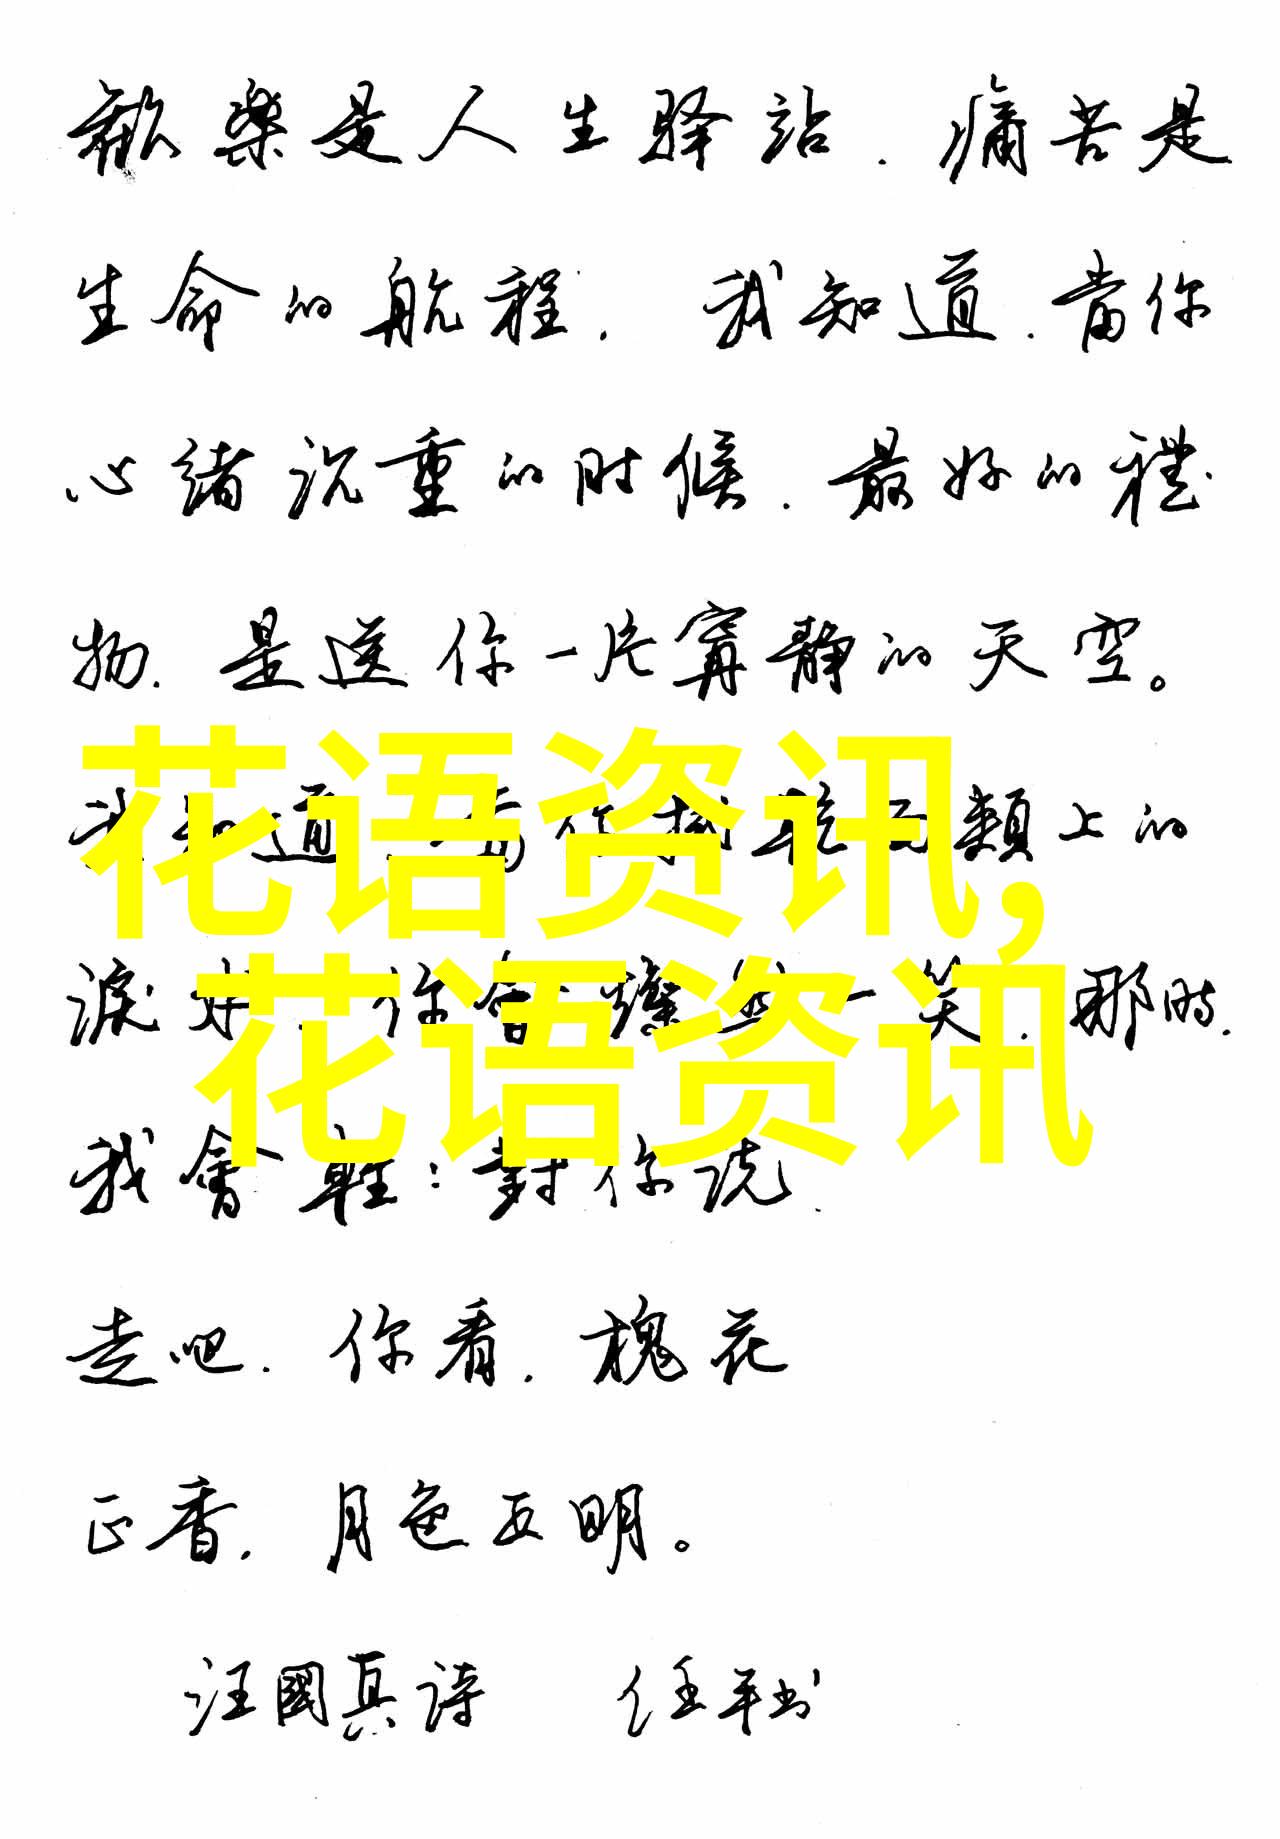 歡樂是人生驿站. 痛苦是
生命的航程. 我知道. 當你
心緒沉重的时候. 最好的禮
物. 是送你一片寧静的天空。
花语资讯,
道 頰上的
花语资讯
淚 你會燦然一笑. 那时.
我會輕: 對你说.
走吧. 你看. 槐花
正香. 月色正明。
汪國真诗 任平书